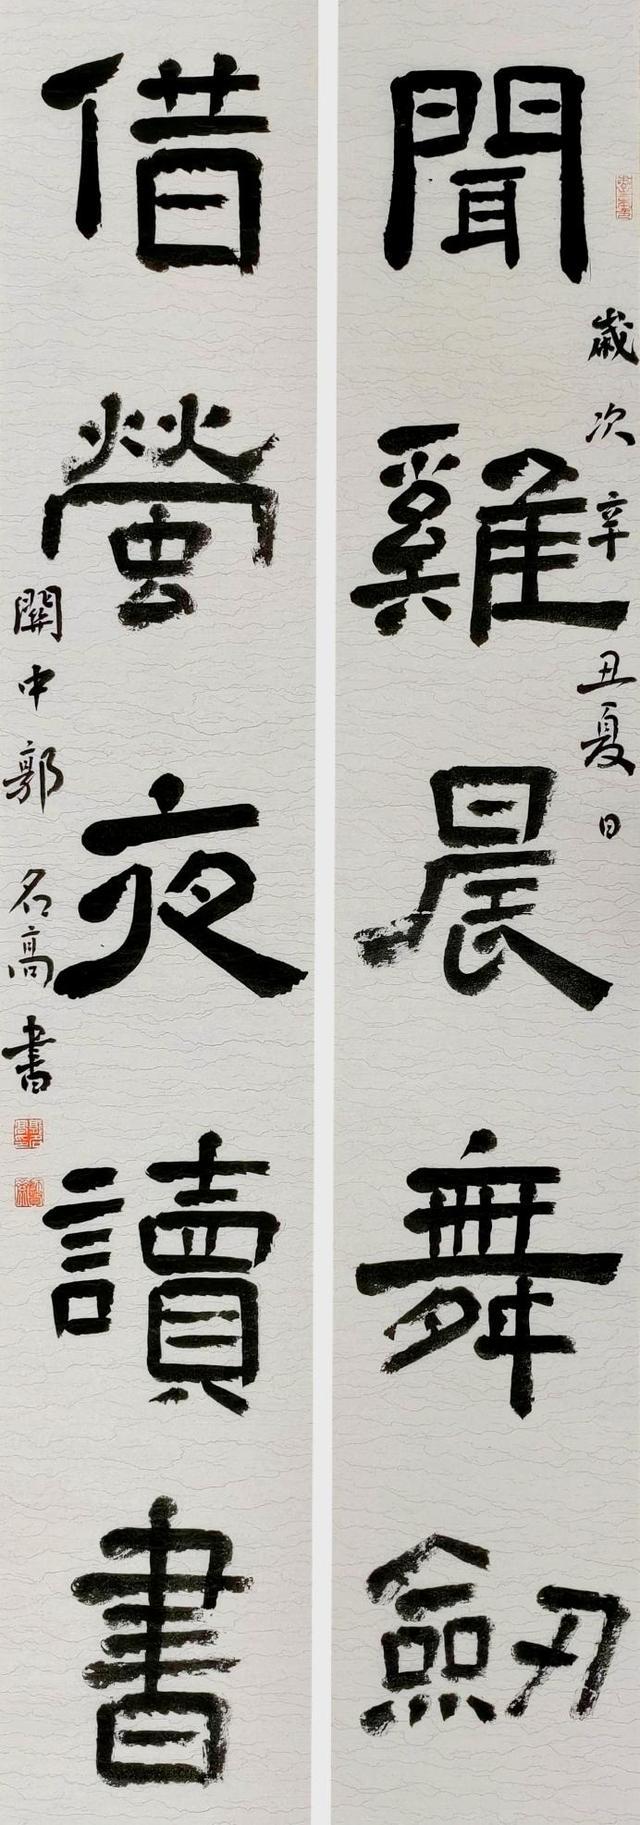 聞雞晨舞劍
歲次辛丑夏日
借螢夜讀書
關中郭名高書